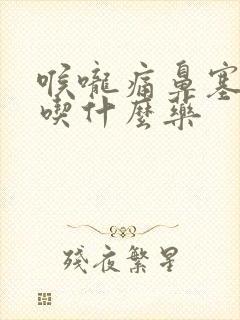 喉嚨痛鼻塞
喫什麼藥
殘夜繁星